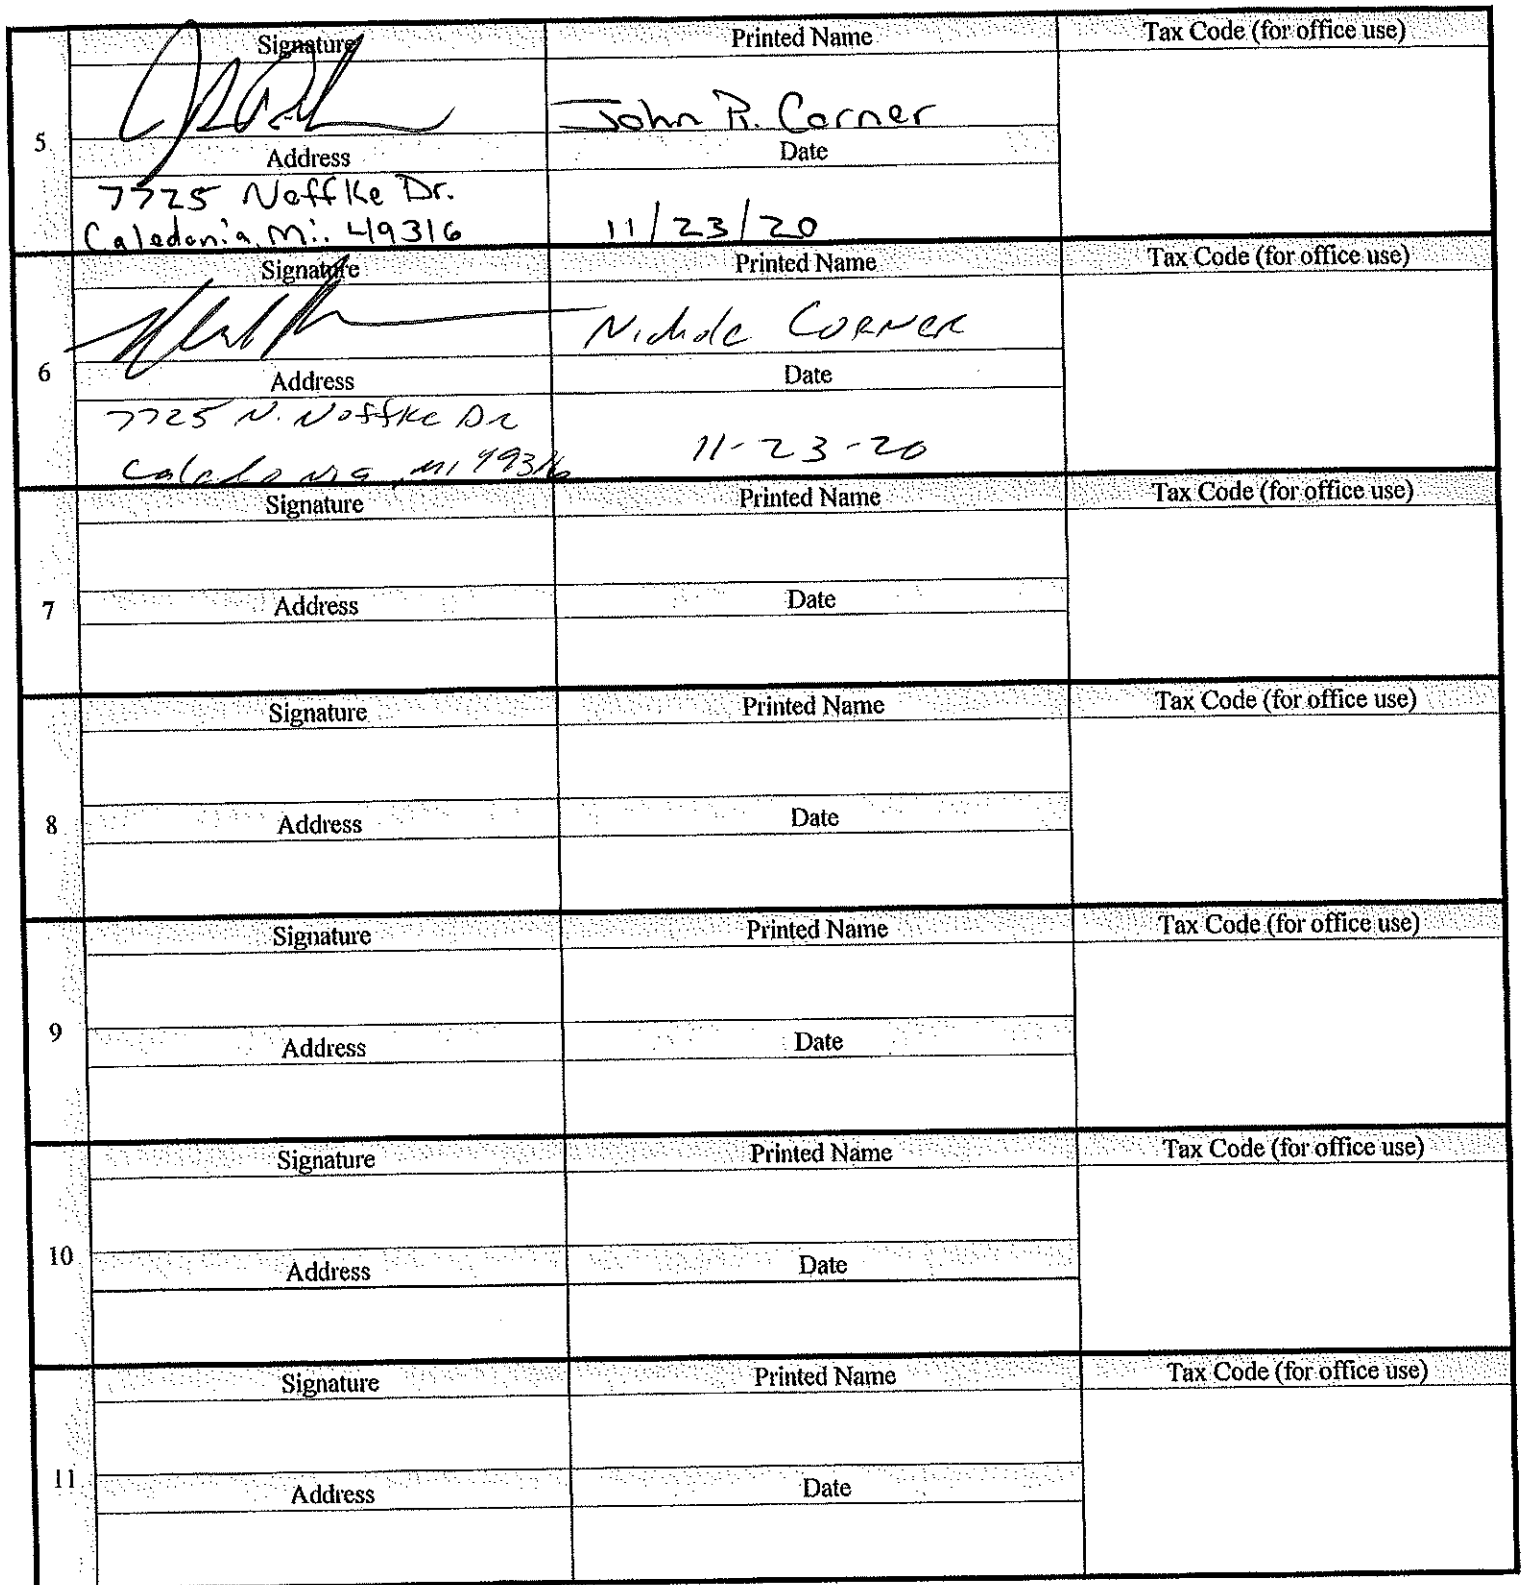 Signature Printed Name Tax Code (for office use)
John R. Corner
5
Address Date
7725 Noffke Dr.
Caledonia, Mi. 49316 11/23/20
Signature Printed Name Tax Code (for office use)
Nichole CORNER
6
Address Date
7725 N. Noffke Dr
Caledonia, MI 49316 11-23-20
Signature Printed Name Tax Code (for office use)
7
Address Date
Signature Printed Name Tax Code (for office use)
8
Address Date
Signature Printed Name Tax Code (for office use)
9
Address Date
Signature Printed Name Tax Code (for office use)
10
Address Date
Signature Printed Name Tax Code (for office use)
11
Address Date